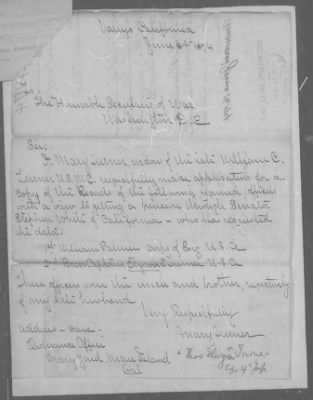 Vallejo California
June 8th 1894
To
The Honorable Secretary of War
Washington D.C
Sir:
I, Mary Turner widow of the late William C.
Turner U.S.M.C. respectfully make application for a
copy of the Records of the following named officers
with a view to getting a pension through Senator
Stephen White of California - who has requested
the data:
1st William Palmer Corps of Eng U.S.A
2nd Brev Captain Turner U.S.A
These officers were the uncle and brother, respectively
of my late husband
Very Respectfully
Mary Turner
address - care -
Ordnance Office
Navy Yard, Mare Island
Cal